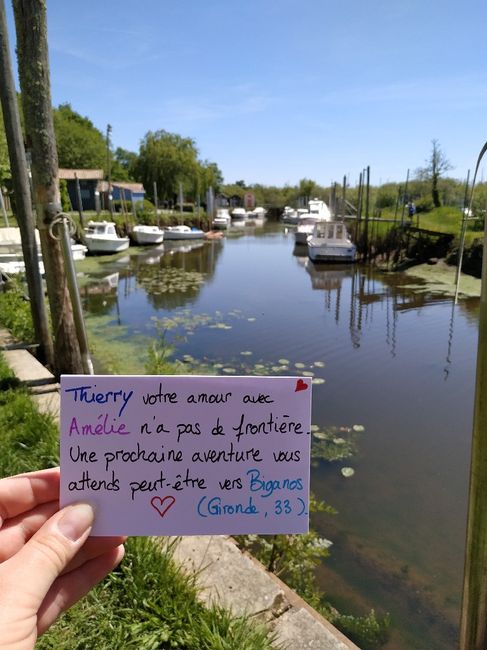 Thierry votre amour avec
Amélie n'a pas de frontière.
Une prochaine aventure vous
attends peut-être vers Biganos
(Gironde, 33).